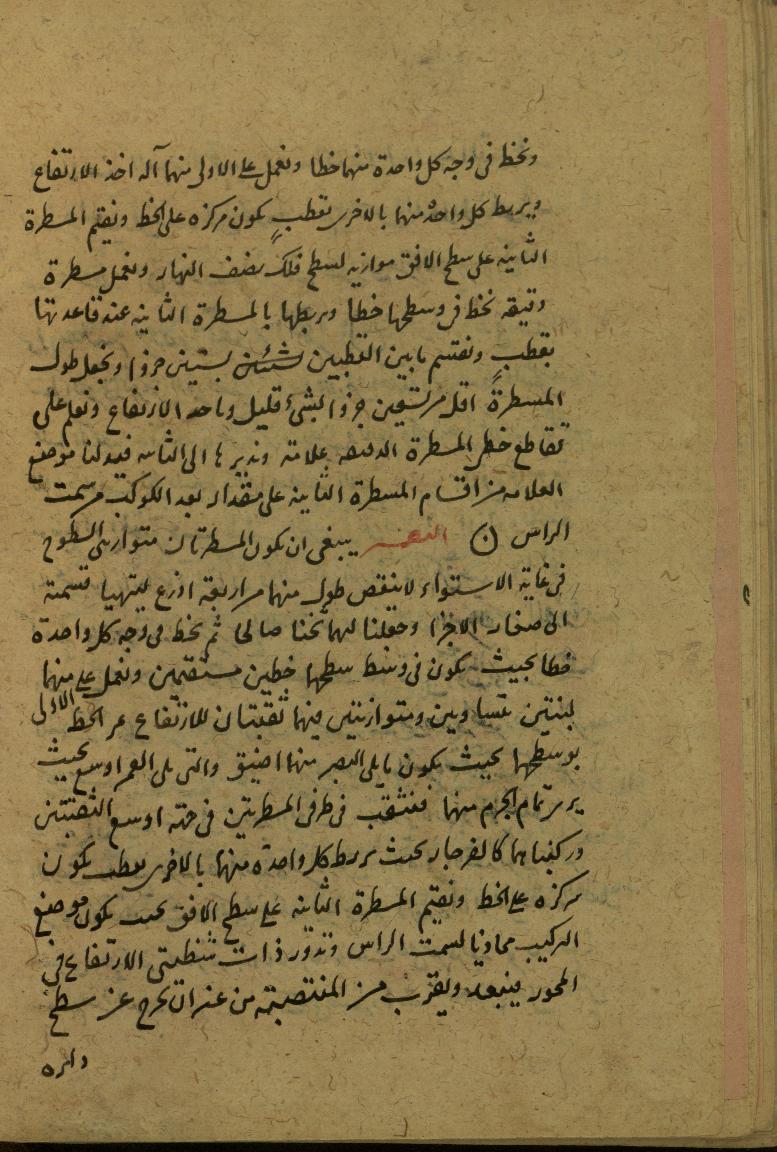 ونخط فى وجه كل واحدة منهما خطا ونعمل على الاولى منهما آلة اخذ الارتفاع
ويربط كل واحدة منهما بالاخرى بقطبٍ يكون مركزه على الخط ونقيم المسطرة
الثانيه على سطح الافق موازيه لسطح فلك نصف النهار ونعمل مسطرة
دقيقه نخط فى وسطها خطا ونربطها بالمسطرة الثانيه عند قاعدتها
بقطبٍ ونقسم ما بين القطبين بستين جزوا ونجعل طول
المسطرةً اقل من تسعين جزوا بشئ قليل وناخذ الارتفاع ونعلم على
تقاطع خطى المسطرة الدقيقه علامة ونديرها الى الثانيه فيدلنا موضع
العلامه من اقسام المسطرة الثانيه على مقدار بعد الكوكب من سمت
الراس ن ينبغى ان يكون المسطرتان متوازيتى السطوح
فى غاية الاستواء لا ينقص طول منهما من اربعة اذرع ليتهيا قسمته
الى صغار الاجزا وجعلنا لهما ثخنا صالحا ثم نخط فى وجه كل واحدة
خطا بحيث يكون فى وسط سطحها خطين مستقيمين ونعمل على الاولى منهما
لبنتين متساويين ومتوازيتين فيهما ثقبتان للارتفاع يمر الخط
بوسطهما بحيث يكون ما يلى البصر منهما اضيق والتى يلى القمر اوسع بحيث
يرى تمام الجرم منهما فنثقب فى طرفى المسطرتين فى جهة اوسع الثقبتين
وركبناهما كالفرجار بحيث يربط كل واحدة منهما بالاخرى بقطب يكون
مركزه على الخط ونقيم المسطرة الثانيه على سطح الافق بحيث يكون موضع
التركيب محاذيا لسمت الراس وتدور ذات شظيتى الارتفاع فى
المحور فيبعد ويقرب من المنتصبة من غير ان يخرج عن سطح
دائره